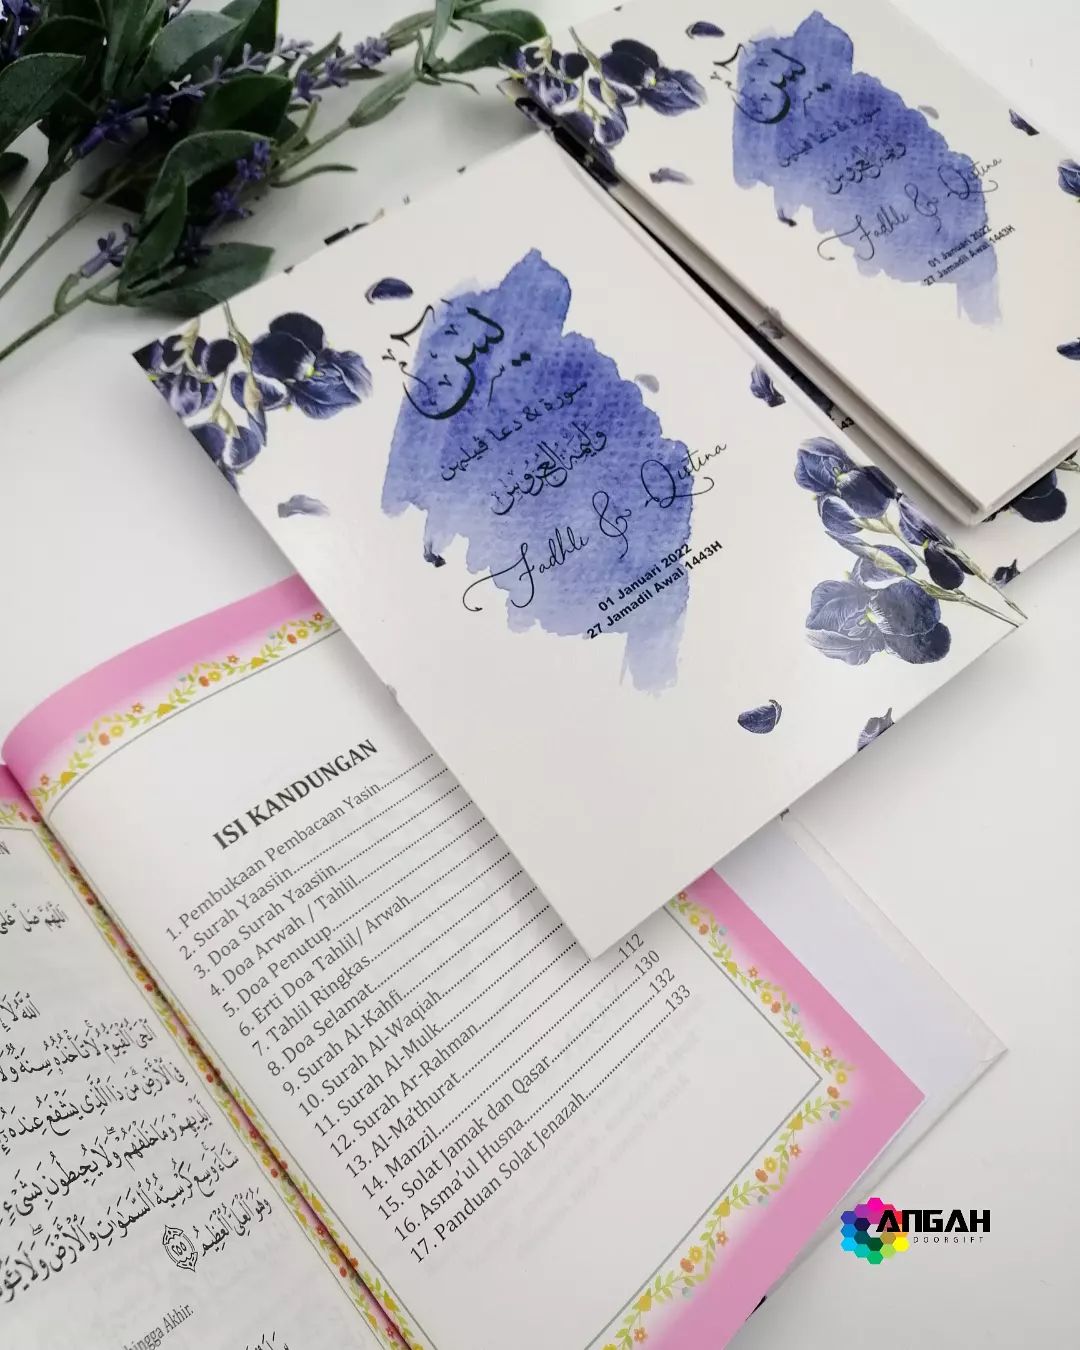 يس
سورة & دعا ڤيليهن
وليمة العروس
Fadhli & Qistina
01 Januari 2022
27 Jamadil Awal 1443H
يس
سورة & دعا ڤيليهن
وليمة العروس
Fadhli & Qistina
01 Januari 2022
27 Jamadil Awal 1443H
ISI KANDUNGAN
1. Pembukaan Pembacaan Yasin
2. Surah Yaasiin
3. Doa Surah Yaasiin
4. Doa Arwah / Tahlil
5. Doa Penutup
6. Erti Doa Tahlil/ Arwah
7. Tahlil Ringkas
8. Doa Selamat
9. Surah Al-Kahfi
10. Surah Al-Waqiah
11. Surah Al-Mulk
12. Surah Ar-Rahman
13. Al-Ma'thurat
14. Manzil 112
15. Solat Jamak dan Qasar 130
16. Asma'ul Husna 132
17. Panduan Solat Jenazah 133
اللهم صل على
الْحَيُّ الْقَيُّومُ لَا تَأْخُذُهُ سِنَةٌ وَلَا
فِى الْأَرْضِ مَن ذَا الَّذِى يَشْفَعُ عِندَهُ
أَيْدِيهِمْ وَمَا خَلْفَهُمْ وَلَا يُحِيطُونَ بِشَىْءٍ
شَاءَ وَسِعَ كُرْسِيُّهُ السَّمَٰوَٰتِ وَالْأَرْضَ وَلَا
وَهُوَ الْعَلِىُّ الْعَظِيمُ ٢٥٥
hingga Akhir.
ANGAH
DOORGIFT